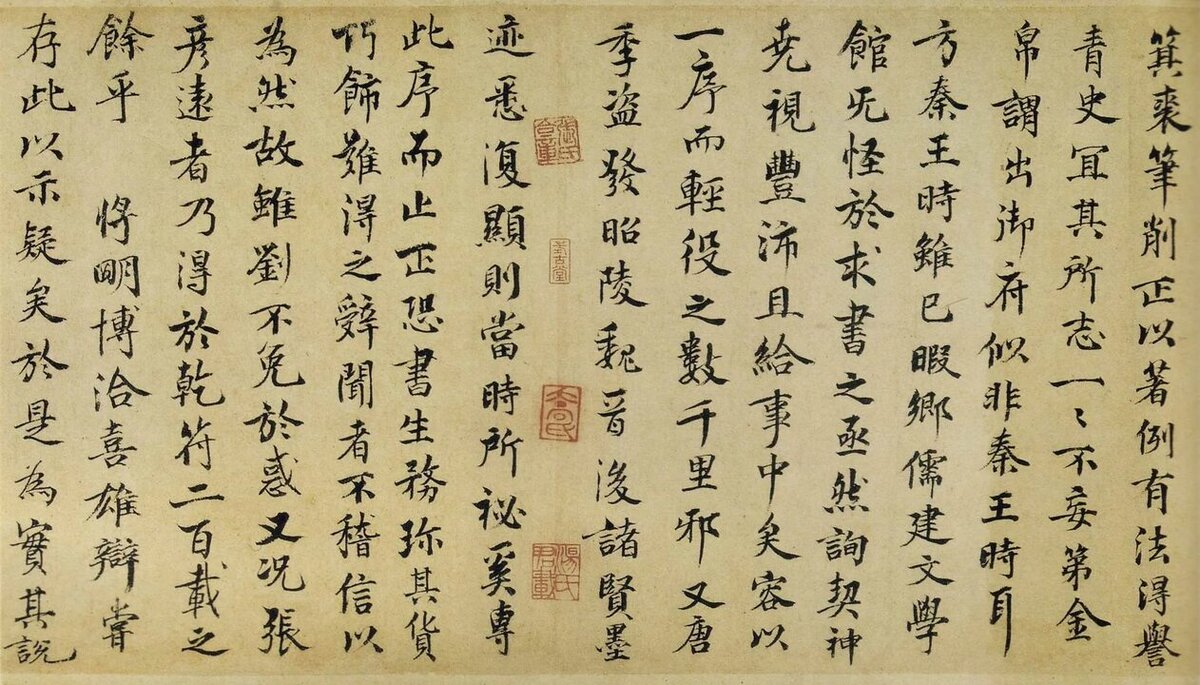 箕裘筆削正以著例有法得譽
青史冝其所志一々不妄第金
帛謂出御府似非秦王時耳
方秦王時雖已暇鄉儒建文學
館旡怪於求書之亟然詢契神
堯視豐沛且給事中矣容以
一序而輕役之數千里邪又唐
季盜發昭陵魏晉後諸賢墨
迹悉復顯則當時所祕奚專
此序而止正恐書生務珎其貨
巧飾難得之辭聞者不稽信以
為然故雖劉不免於惑又况張
彥遠者乃得於乾符二百載之
餘乎 將明博洽喜雄辯嘗
存此以示疑矣於是為實其說